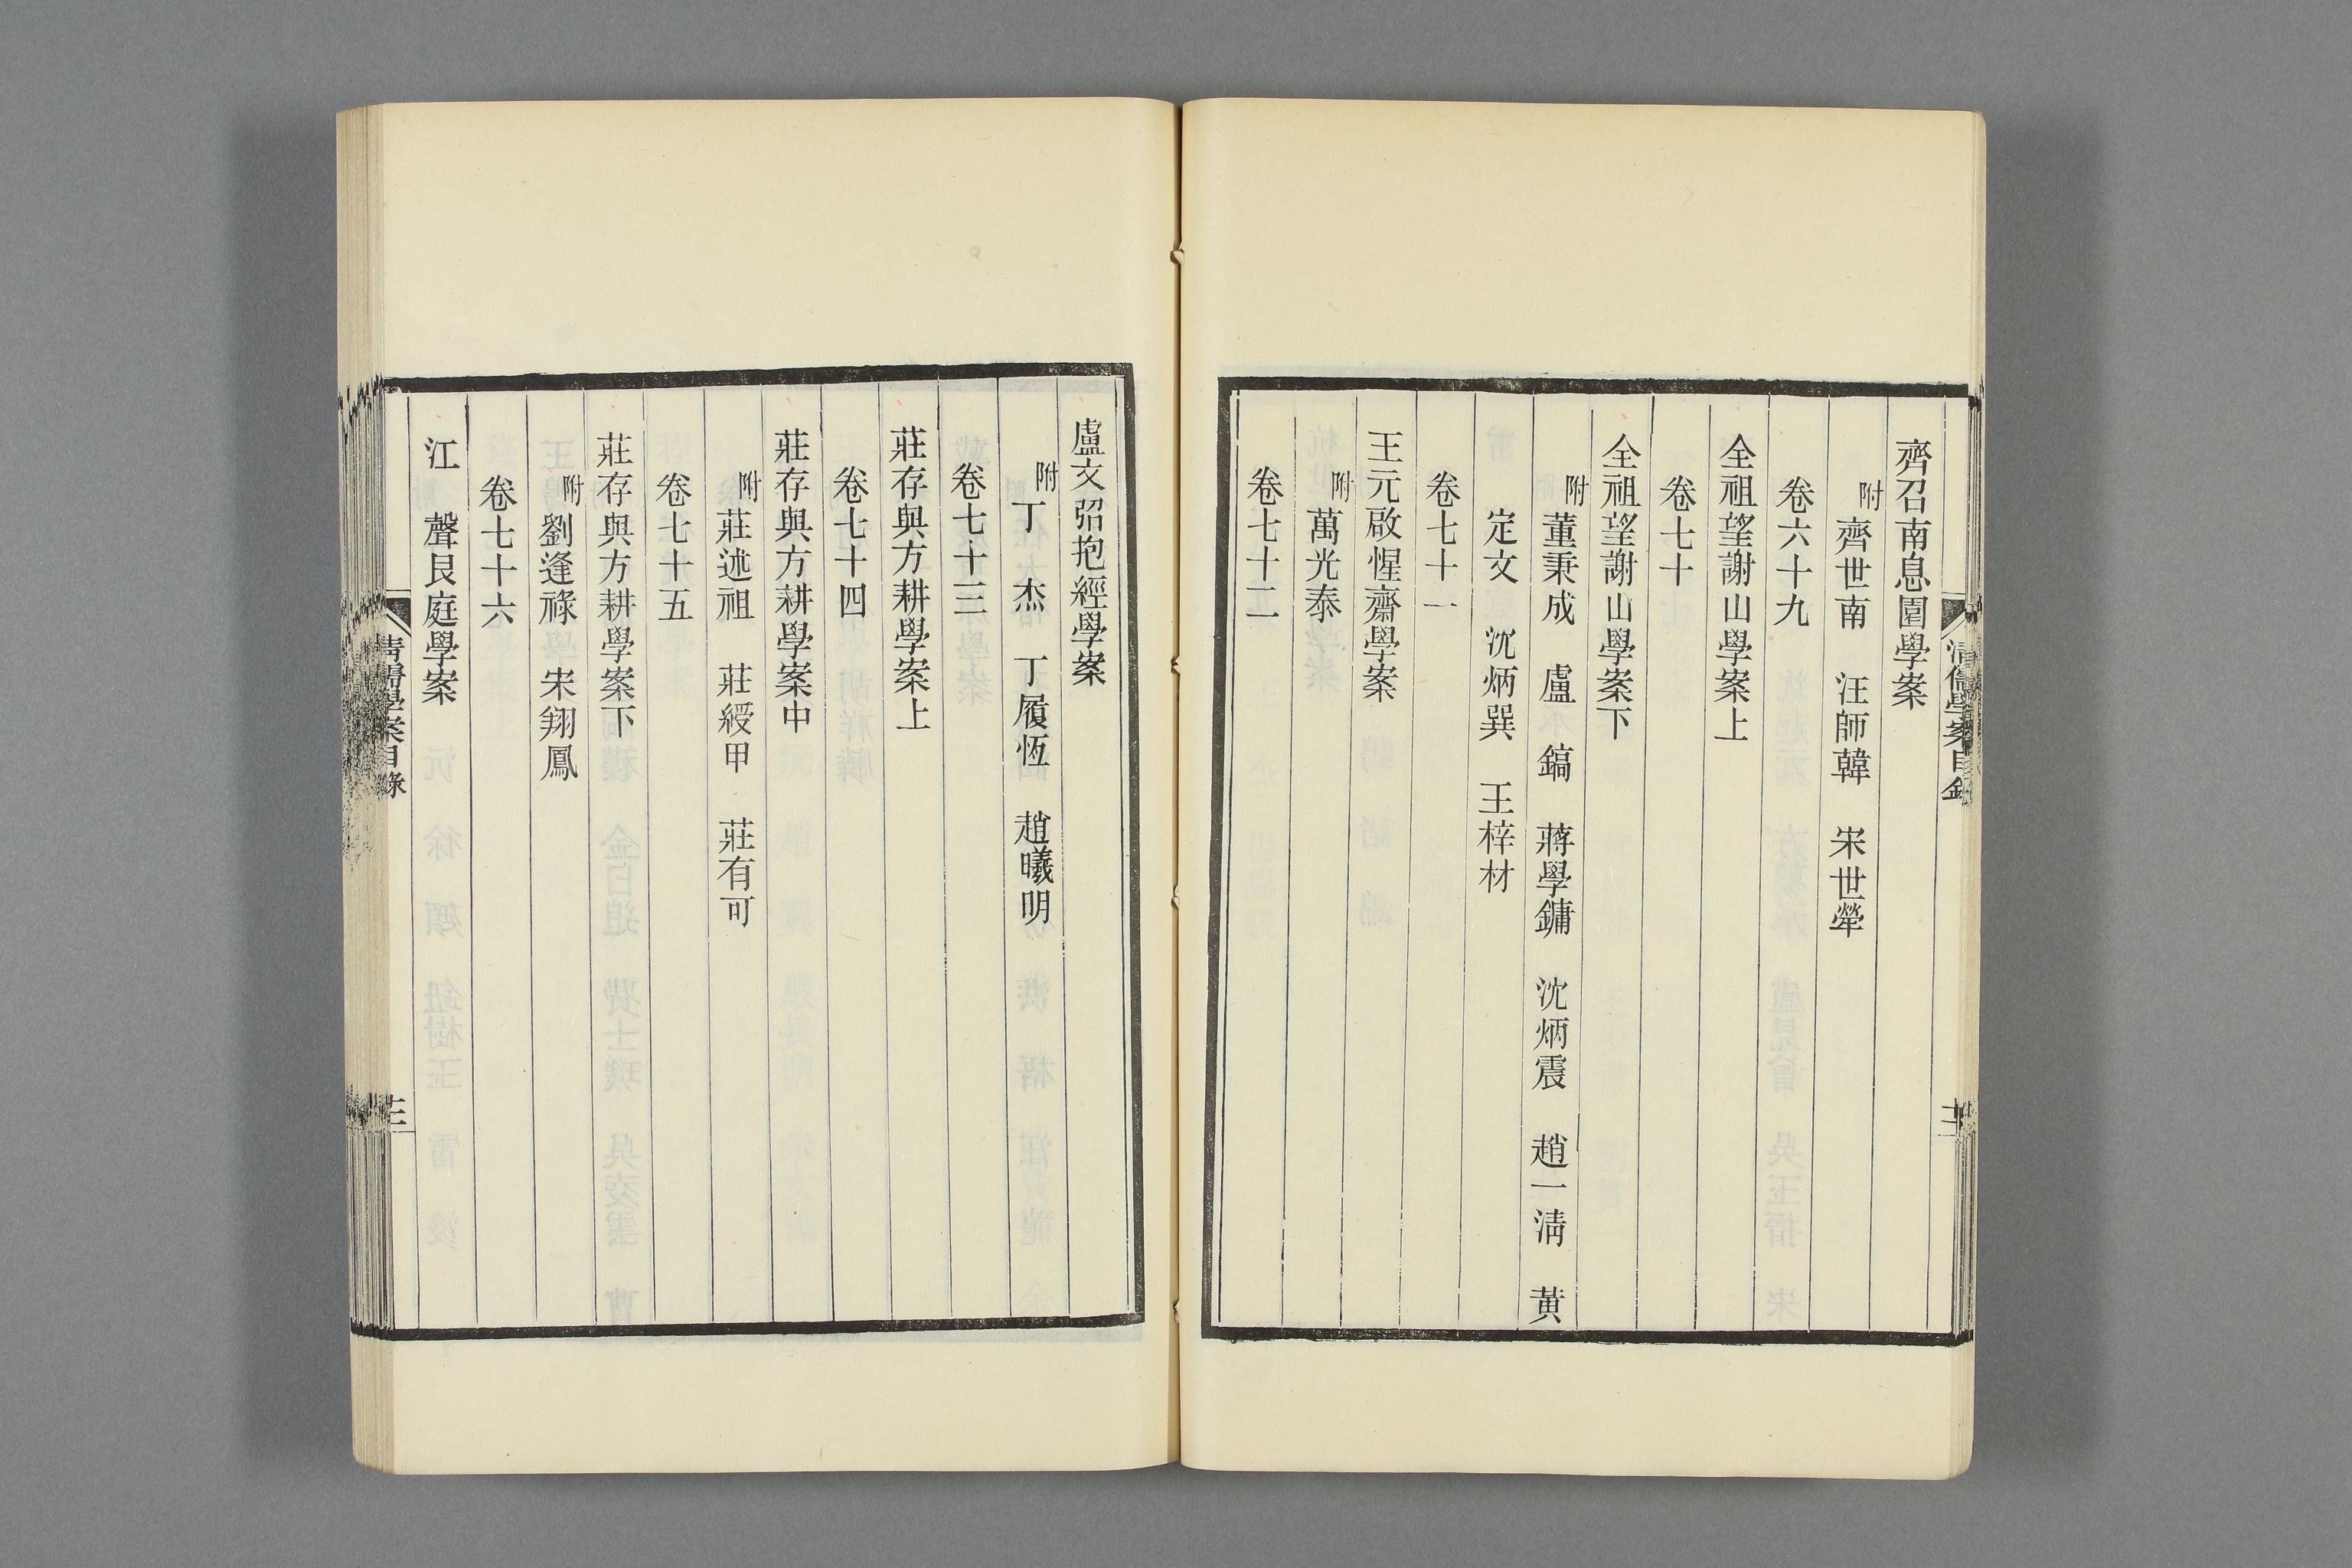 齊召南息園學案
附齊世南　汪師韓　宋世犖
卷六十九
全祖望謝山學案上
卷七十
全祖望謝山學案下
附董秉成　盧　鎬　蔣學鏞　沈炳震　趙一清　黃
定文　沈炳巽　王梓材
卷七十一
王元啟惺齋學案
附萬光泰
卷七十二
清儒學案目錄
盧文弨抱經學案
附丁　杰　丁履恆　趙曦明
卷七十三
莊存與方耕學案上
卷七十四
莊存與方耕學案中
附莊述祖　莊綬甲　莊有可
卷七十五
莊存與方耕學案下
附劉逢祿　宋翔鳳
卷七十六
江　聲艮庭學案
清儒學案目錄